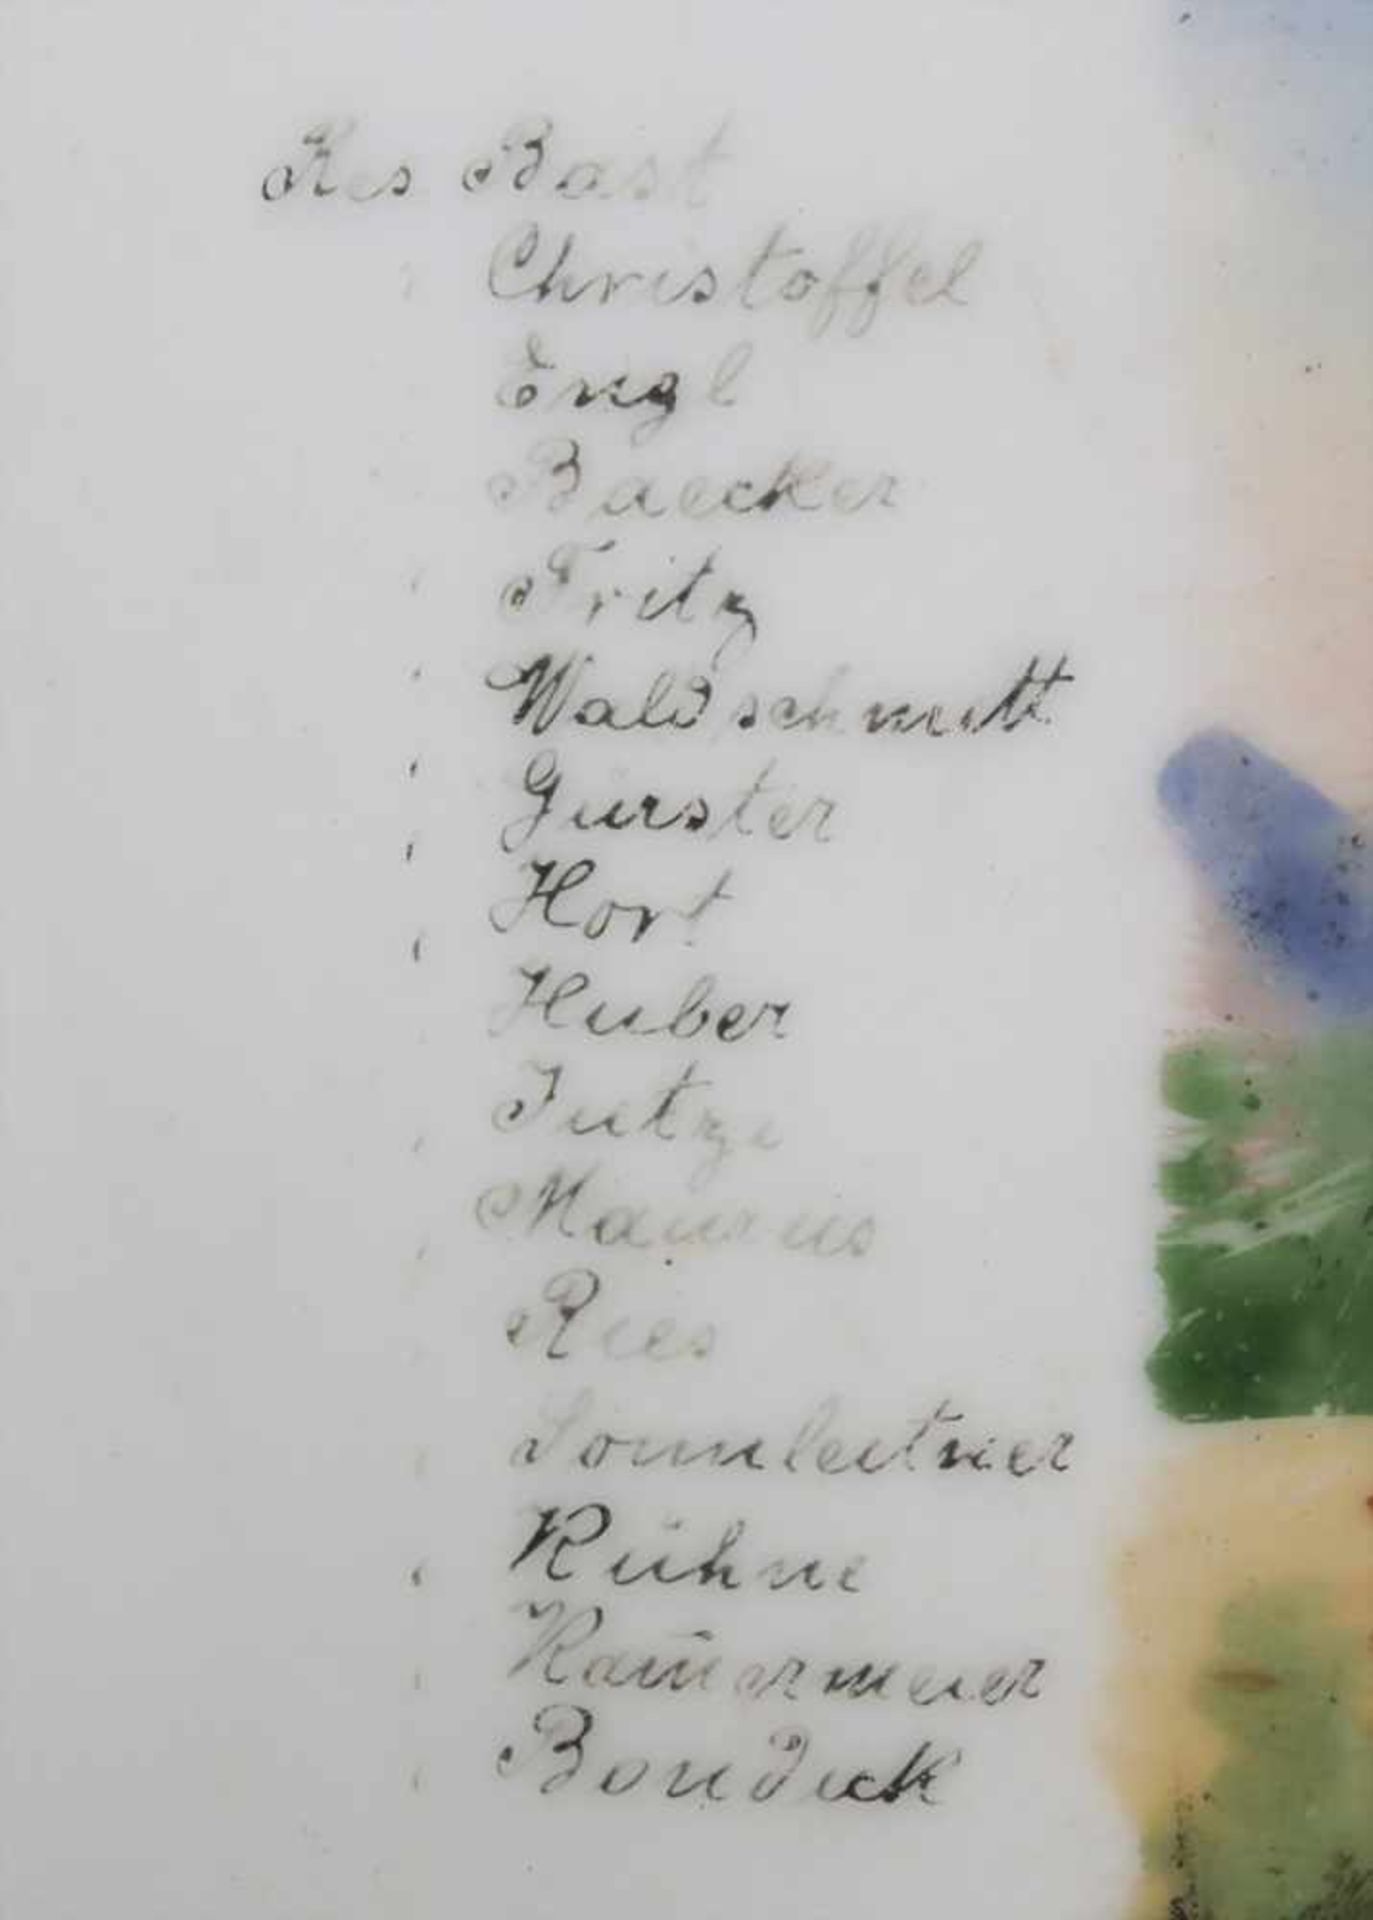 Res Bast
" Christoffel
Engl
Baecker
" Fritz
" Waldschmitt
" Gürster
" Hort
" Huber
Jutzi
" Maurus
" Ries
" Sonnleitner
" Kühne
" Kammermeier
" Bondick